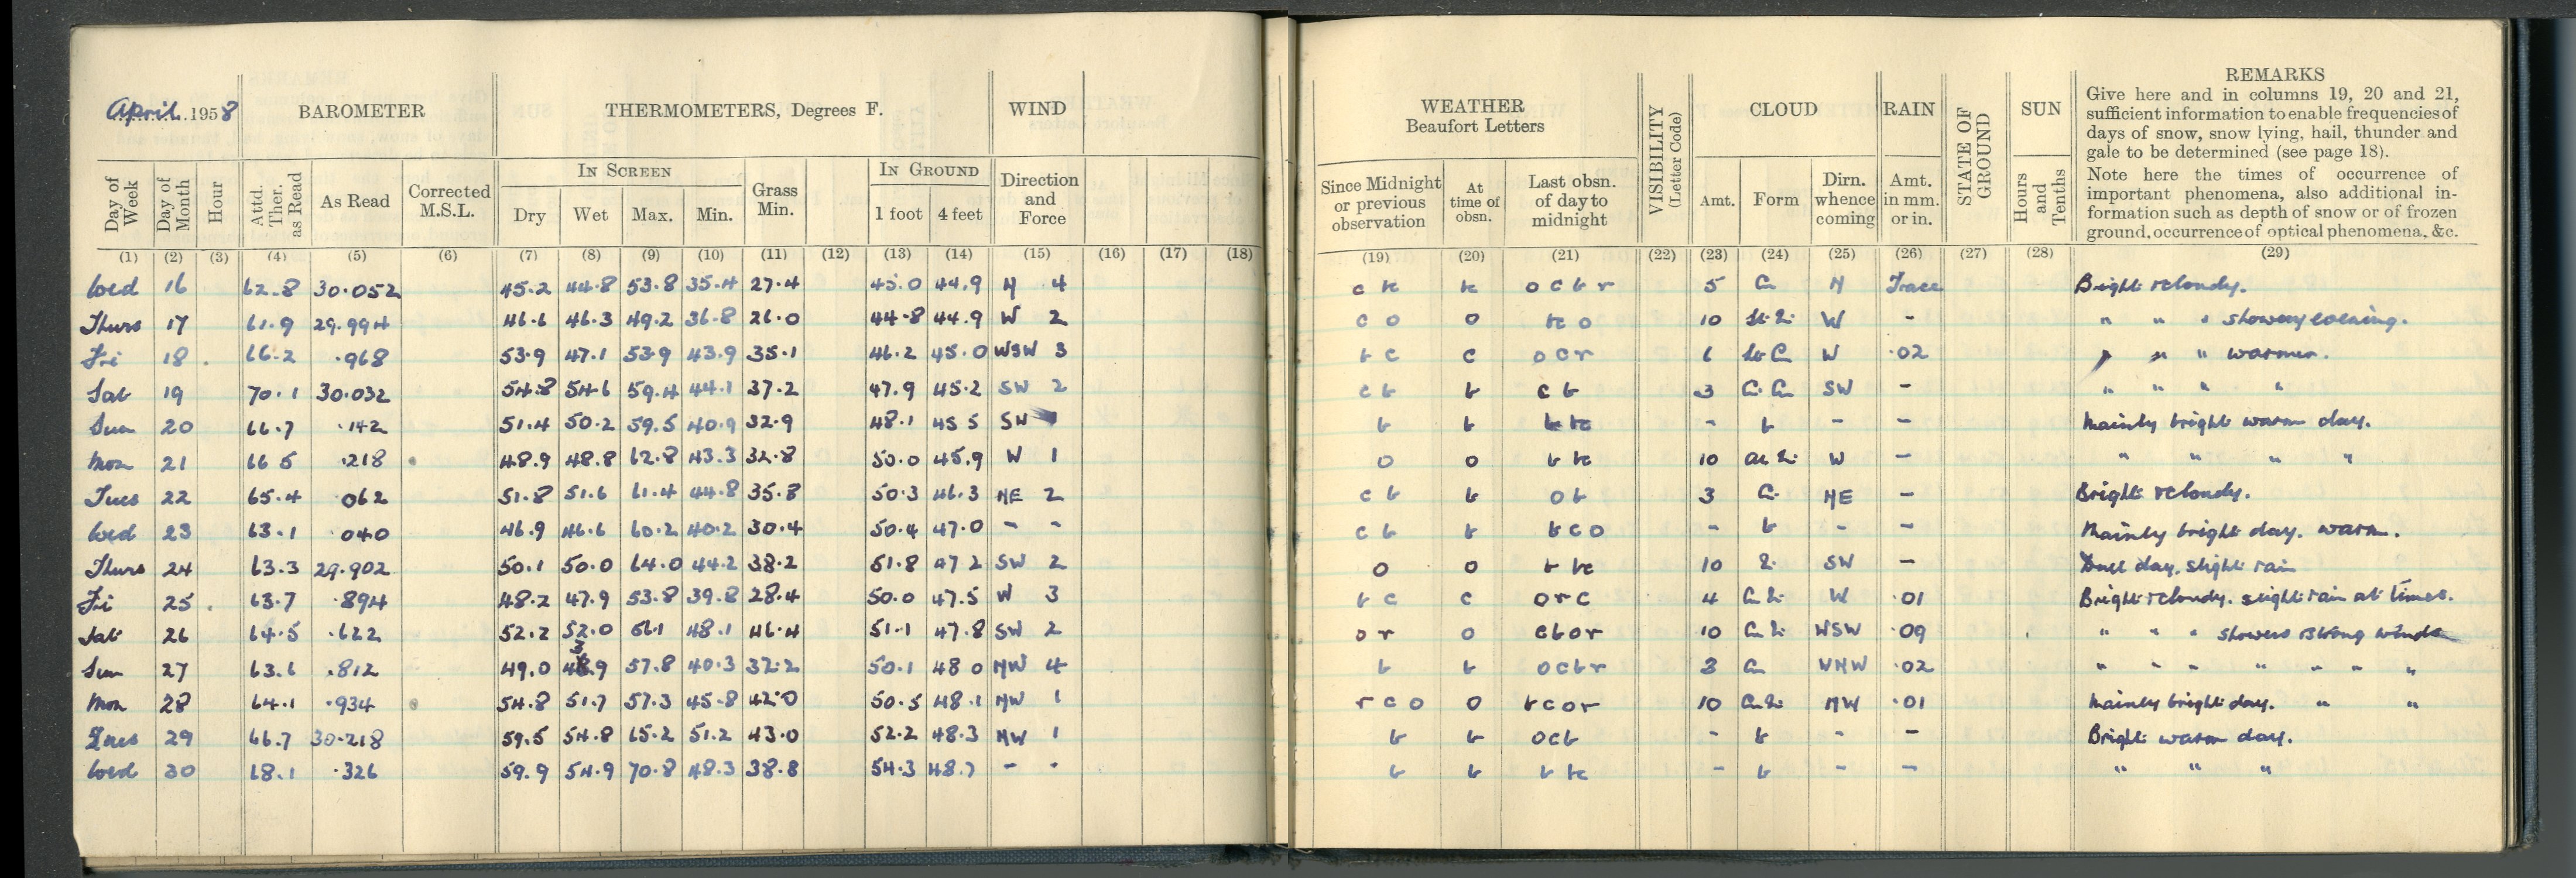 April 1958
BAROMETER
THERMOMETERS, Degrees F.
WIND
Day of Week
Day of Month
Hour
Attd. Ther. as Read
As Read
Corrected M.S.L.
IN SCREEN
Dry
Wet
Max.
Min.
Grass Min.
IN GROUND
1 foot
4 feet
Direction and Force
(1) (2) (3) (4) (5) (6) (7) (8) (9) (10) (11) (12) (13) (14) (15) (16) (17) (18)
Wed 16 62.8 30.052 45.2 44.8 53.8 35.4 27.4 45.0 44.9 N 4
Thurs 17 61.9 29.994 46.6 46.3 49.2 36.8 26.0 44.8 44.9 W 2
Fri 18 66.2 .968 53.9 47.1 53.9 43.9 35.1 46.2 45.0 WSW 3
Sat 19 70.1 30.032 54.8 54.6 59.4 44.1 37.2 47.9 45.2 SW 2
Sun 20 66.7 .142 51.4 50.2 59.5 40.9 32.9 48.1 45 5 SW
Mon 21 66 5 .218 48.9 48.8 62.8 43.3 32.8 50.0 45.9 W 1
Tues 22 65.4 062 51.8 51.6 61.4 44.8 35.8 50.3 46.3 NE 2
Wed 23 63.1 040 46.9 46.6 60.2 40.2 30.4 50.4 47.0 - -
Thurs 24 63.3 29.902 50.1 50.0 64.0 44.2 38.2 51.8 47 2 SW 2
Fri 25 63.7 .894 48.2 47.9 53.8 39.8 28.4 50.0 47.5 W 3
Sat 26 64.5 .622 52.2 52.0 56.1 48.1 46.4 51.1 47.8 SW 2
Sun 27 63.6 .812 49.0 57.8 40.3 32.2 50.1 48 0 NW 4
Mon 28 64.1 .934 54.8 51.7 57.3 45.8 42.0 50.5 48.1 NW 1
Tues 29 66.7 30.218 59.5 54.8 65.2 51.2 43.0 52.2 48.3 NW 1
Wed 30 68.1 .326 59.9 54.9 70.8 48.3 38.8 54.3 48.7 - -
WEATHER
Beaufort Letters
Since Midnight or previous observation
At time of obsn.
Last obsn. of day to midnight
VISIBILITY (Letter Code)
CLOUD
Amt.
Form
Dirn. whence coming
RAIN
Amt. in mm. or in.
STATE OF GROUND
SUN
Hours and Tenths
REMARKS
Give here and in columns 19, 20 and 21,
sufficient information to enable frequencies of
days of snow, snow lying, hail, thunder and
gale to be determined (see page 18).
Note here the times of occurrence of
important phenomena, also additional in-
formation such as depth of snow or of frozen
ground, occurrence of optical phenomena, &c.
(19) (20) (21) (22) (23) (24) (25) (26) (27) (28) (29)
c bc bc o c b r 5 Cu N Trace Bright & cloudy.
c o o bc o 10 W - " " " showery evening.
b c c o c r 6 W .02 " " " warmer.
c b b c b 3 SW - " " " "
b b b bc - b - - Mainly bright warm day.
o o b bc 10 W - " " " "
c b b o b 3 NE - Bright & cloudy.
c b b b c o - b - - Mainly bright day. warm.
o o b bc 10 SW - Dull day. slight rain
b c c o r c 4 W .01 Bright & cloudy. slight rain at times.
o r o c b o r 10 WSW .09 " " " showers & strong winds
b b o c b r 3 Cu WNW .02 " " " " " " "
r c o o b c o r 10 NW .01 Mainly bright day. " "
b b o c b - b - - Bright warm day.
b b b bc - b - - " " "